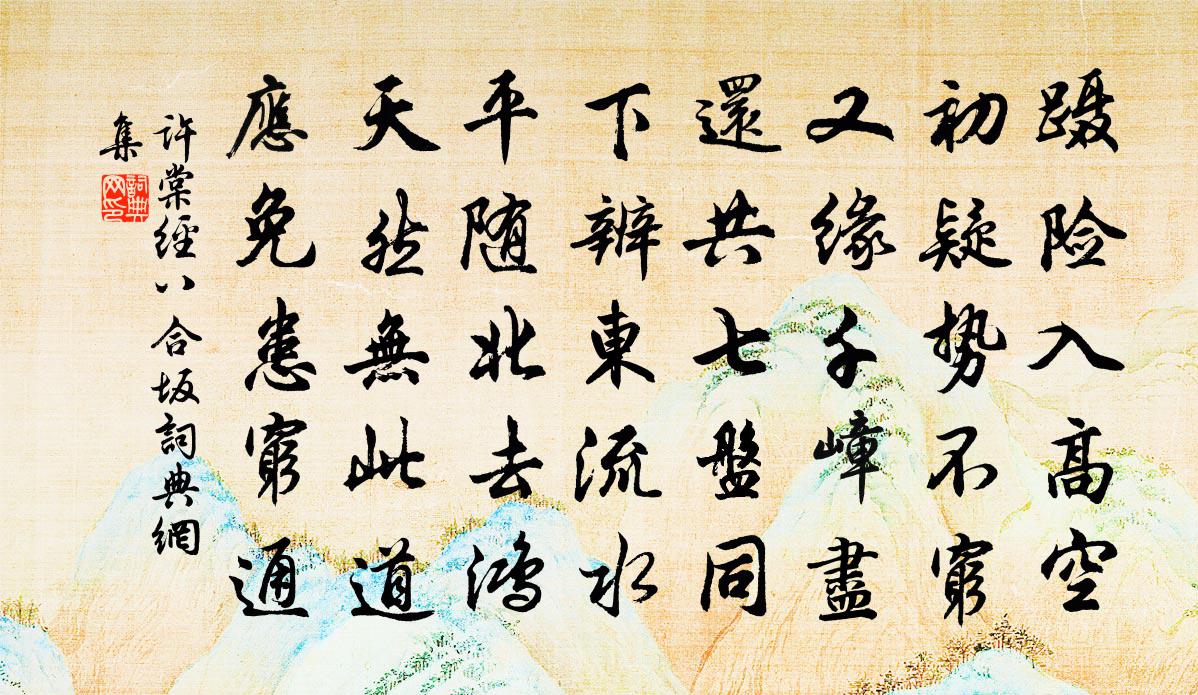 蹑险入高空
初疑势不窮
又缘千嶂盡
還共七盤同
下辨東流水
平随北去鸿
天然無此道
應免患窮通
許棠經八合坂詞典網
集
詞典
网印